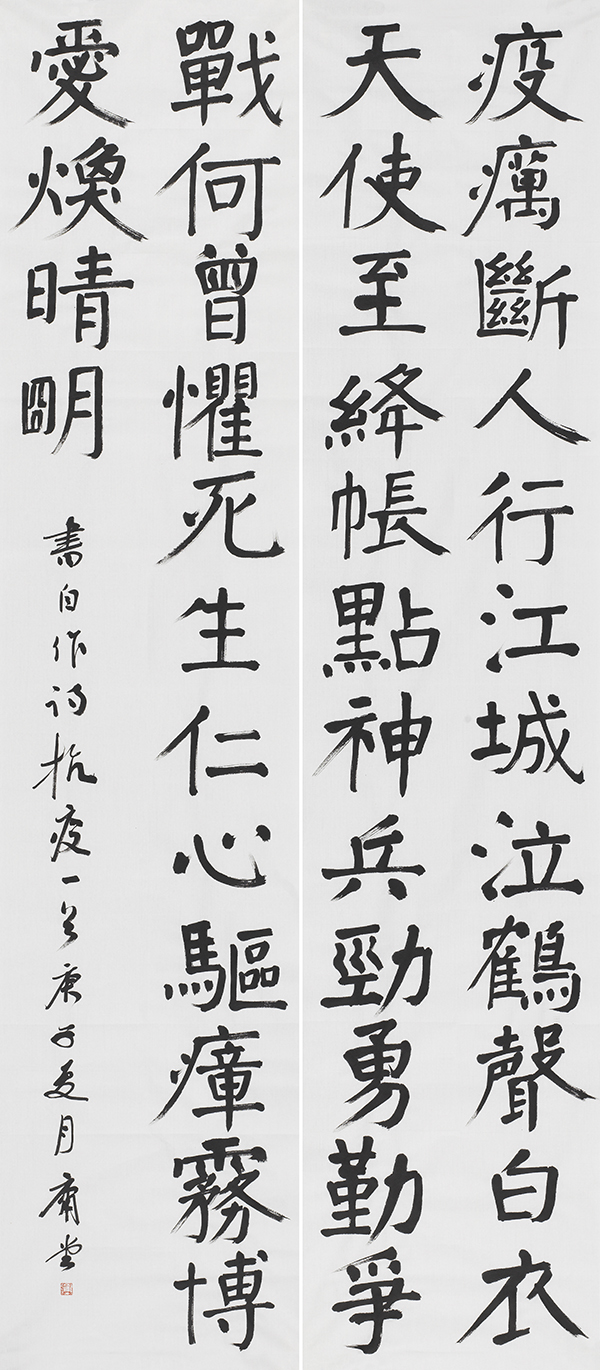 疫癘斷人行江城泣鶴聲白衣
天使至絳帳點神兵勁勇勤爭
戰何曾懼死生仁心驅瘴霧博
愛煥晴明
書自作詩抗疫一首庚子夏月庸堂